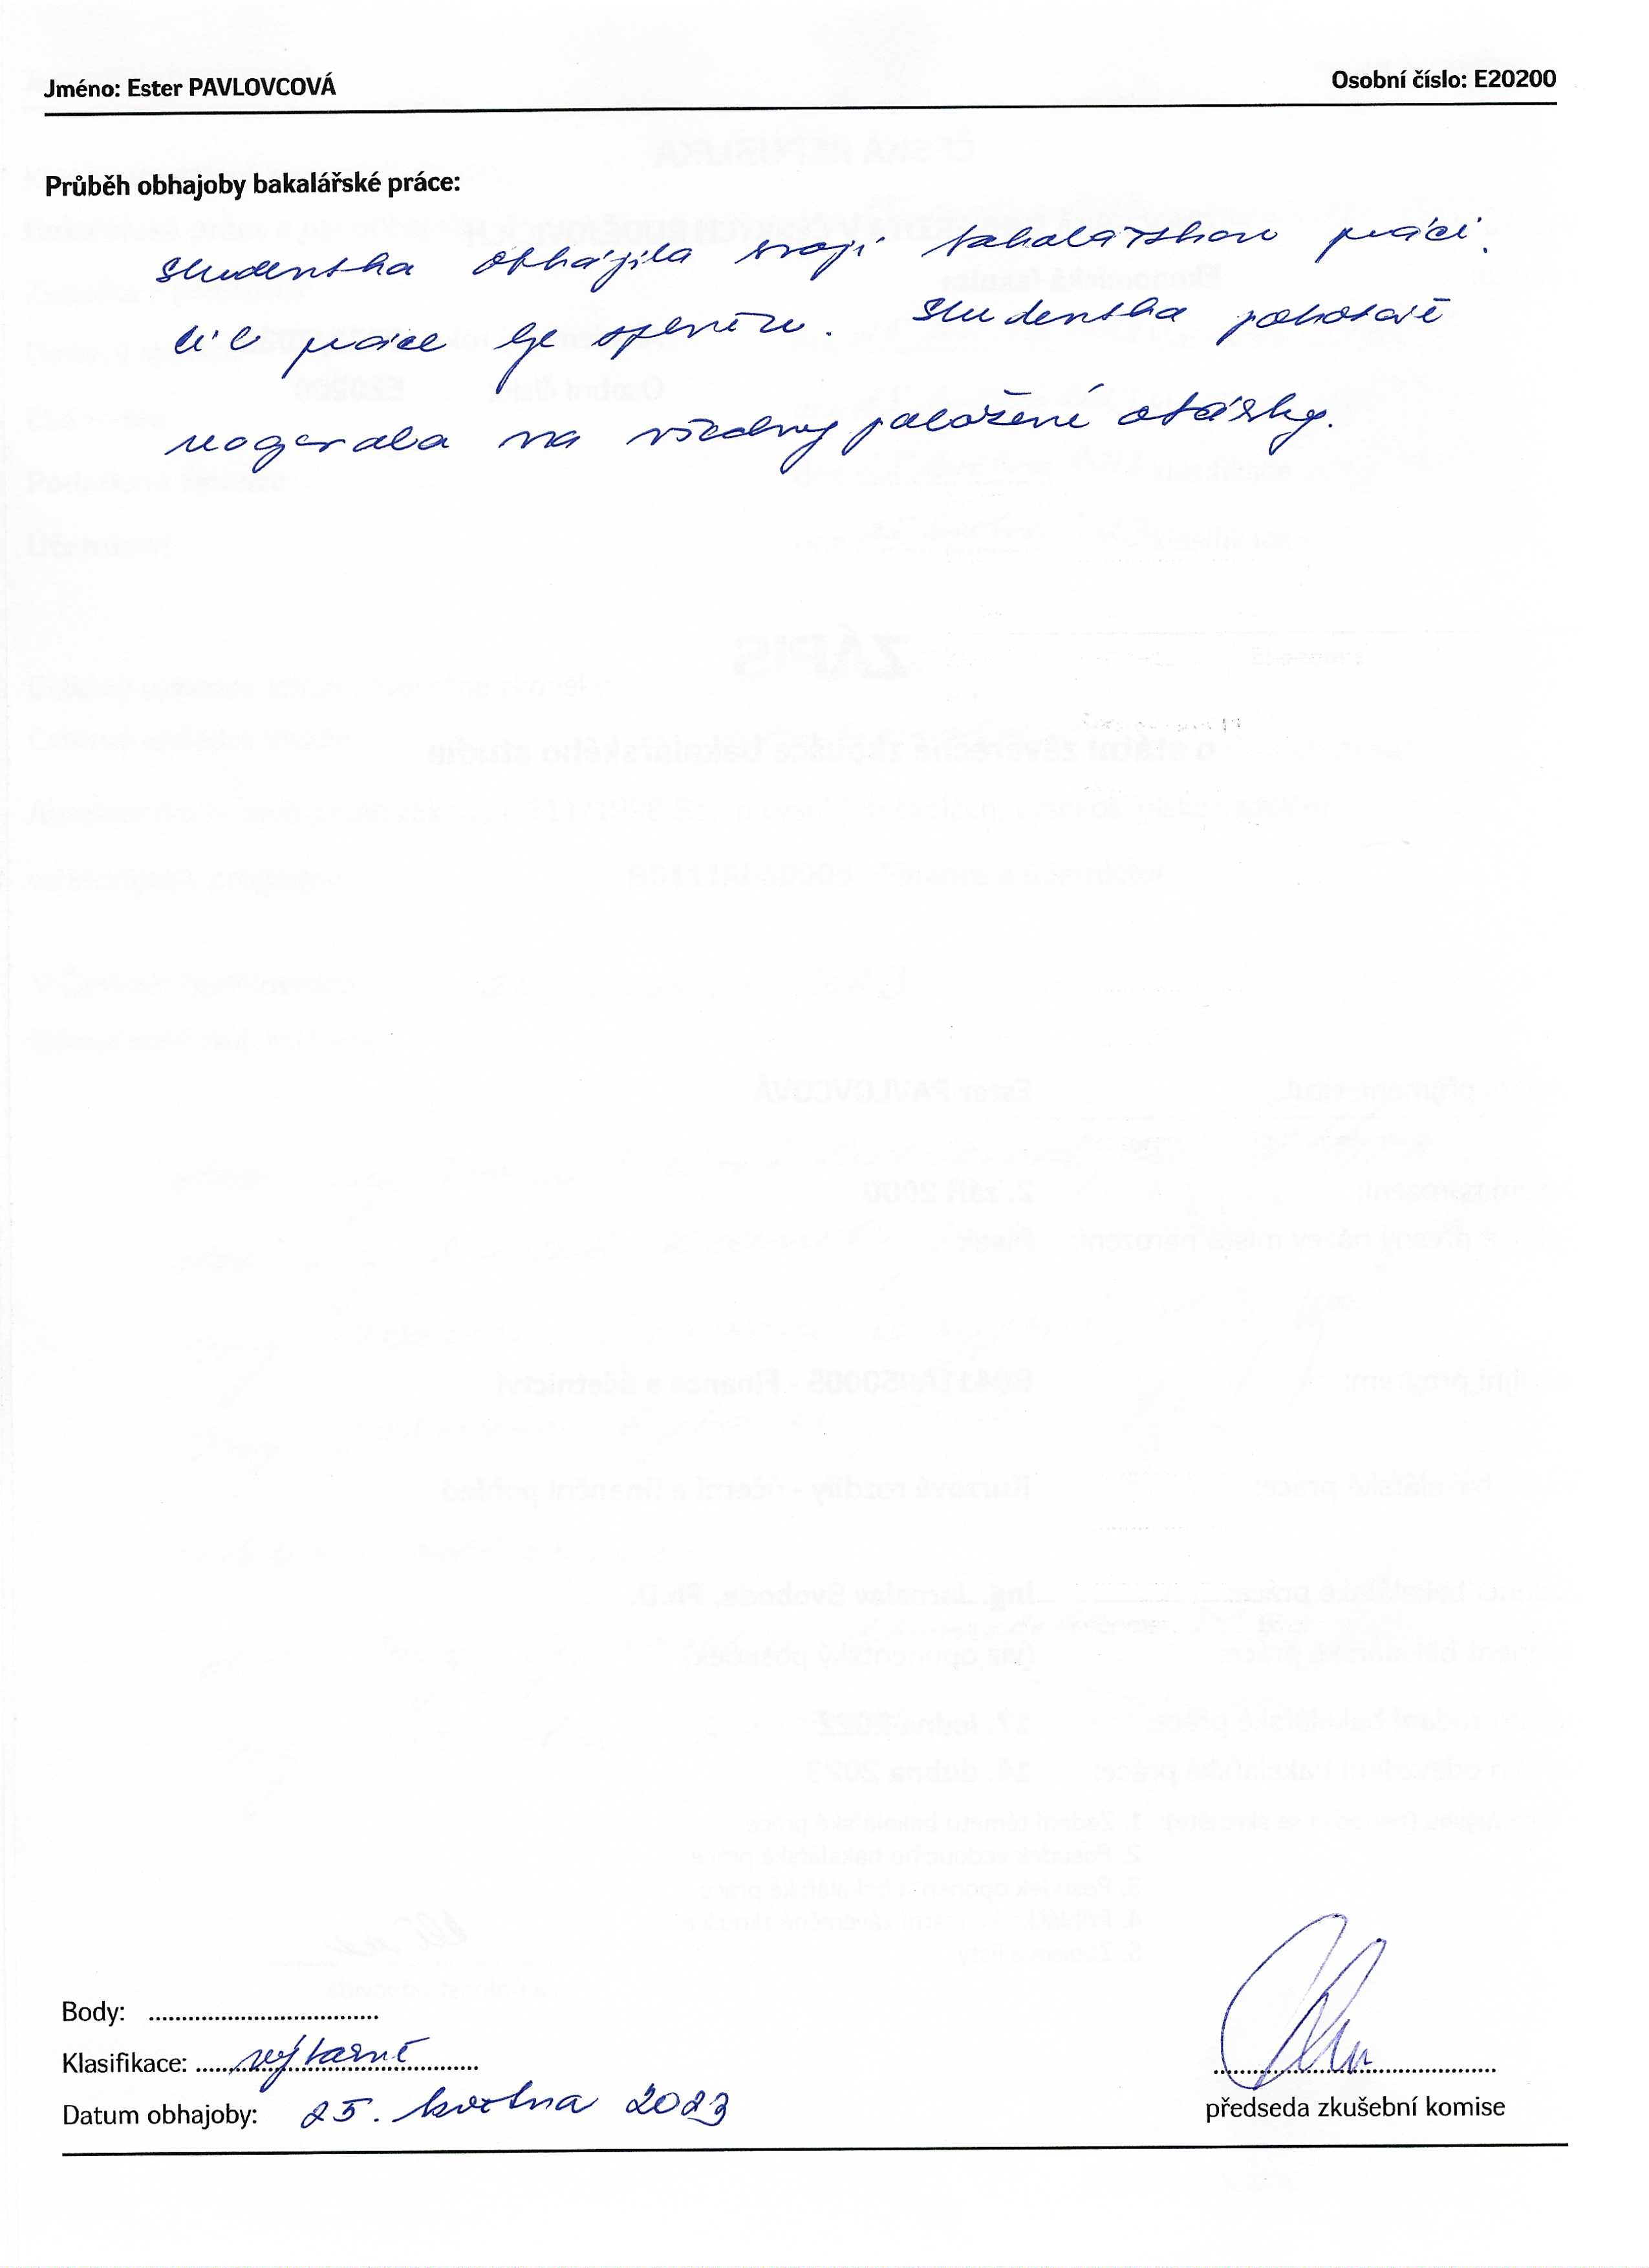 Jméno: Ester PAVLOVCOVÁ Osobní číslo: E20200
Průběh obhajoby bakalářské práce:
Studentka obhájila svoji bakalářskou práci.
Cíl práce je splněn. Studentka pohotově
reagovala na všechny položené otázky.
Body: ...................................
Klasifikace: výborně
Datum obhajoby: 25. května 2023
předseda zkušební komise